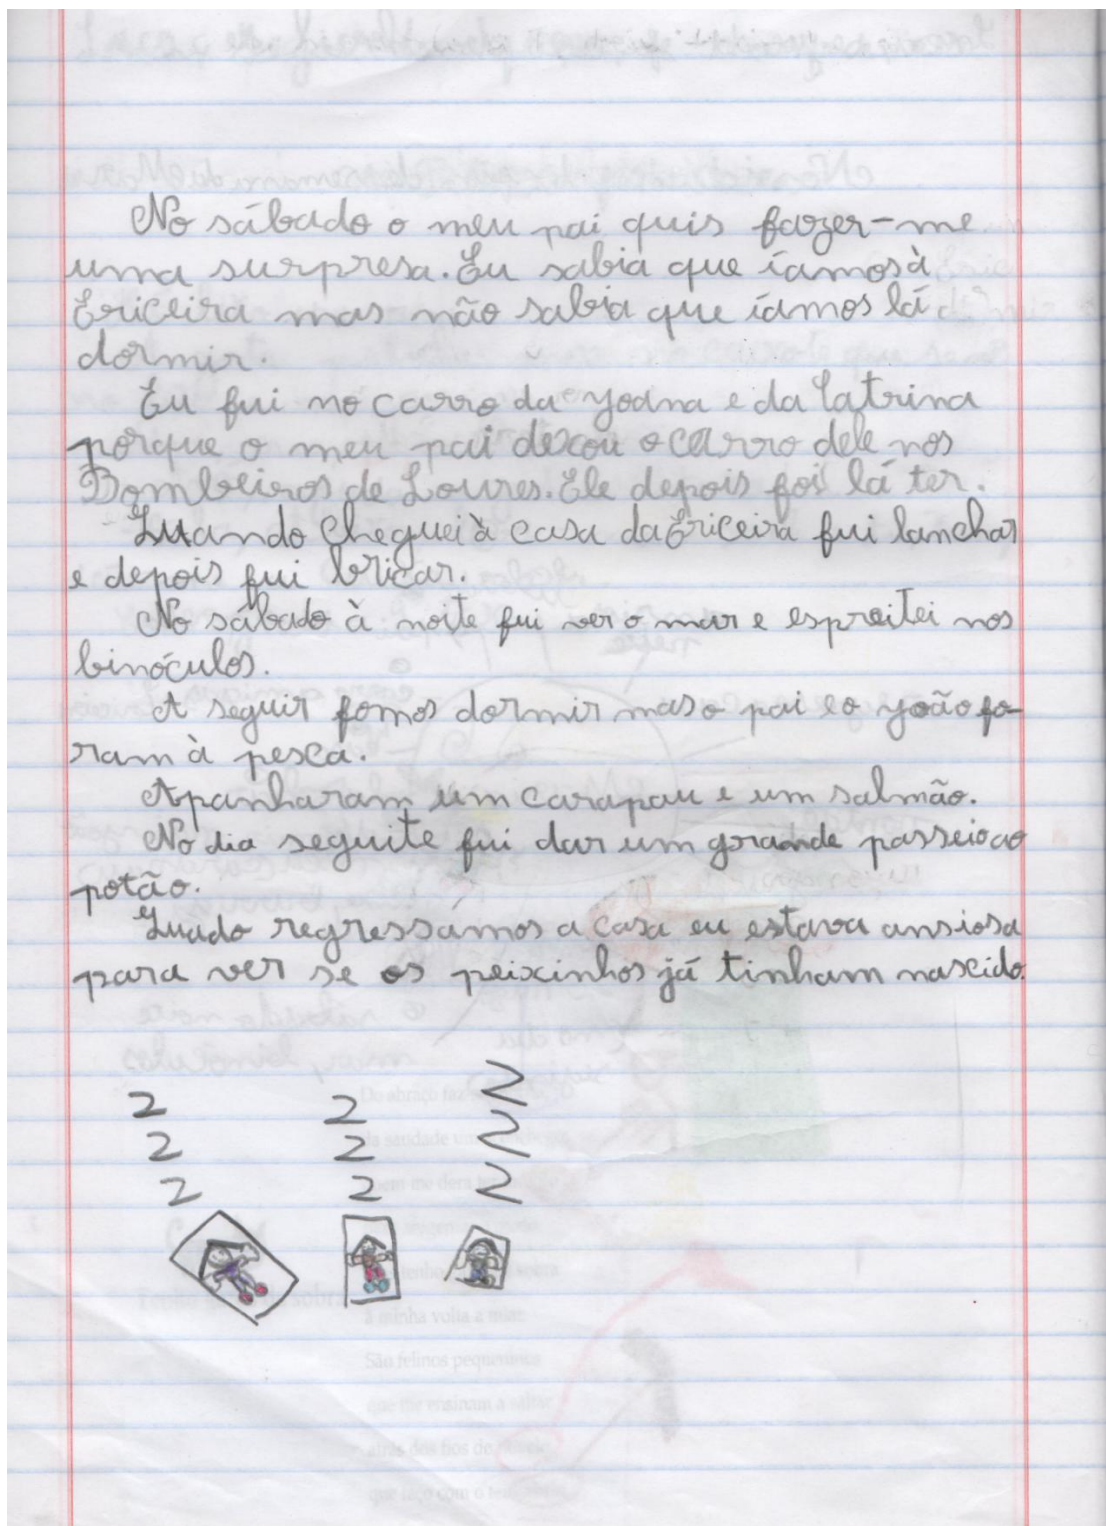 No sábado o meu pai quis fazer-me
uma surpresa. Eu sabia que íamos à
Ericeira mas não sabia que íamos lá
dormir.
Eu fui no carro da Joana e da Catrina
porque o meu pai dexou o carro dele nos
Bombeiros de Loures. Ele depois foi lá ter.
Quando cheguei à casa da Ericeira fui lanchar
e depois fui bricar.
No sábado à noite fui ver o mar e espreitei nos
binóculos.
A seguir fomos dormir mas o pai e o João fo-
ram à pesca.
Apanharam um carapau e um salmão.
No dia seguite fui dar um grande passeio ao
potão.
Quado regressamos a casa eu estava ansiosa
para ver se os peixinhos já tinham nascido.
2 2 Z
2 2 Z
2 2 Z